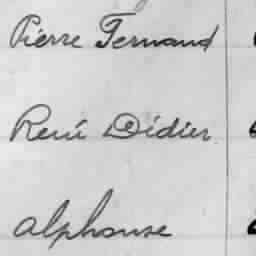 Pierre Fernand
René Didier
alphonse